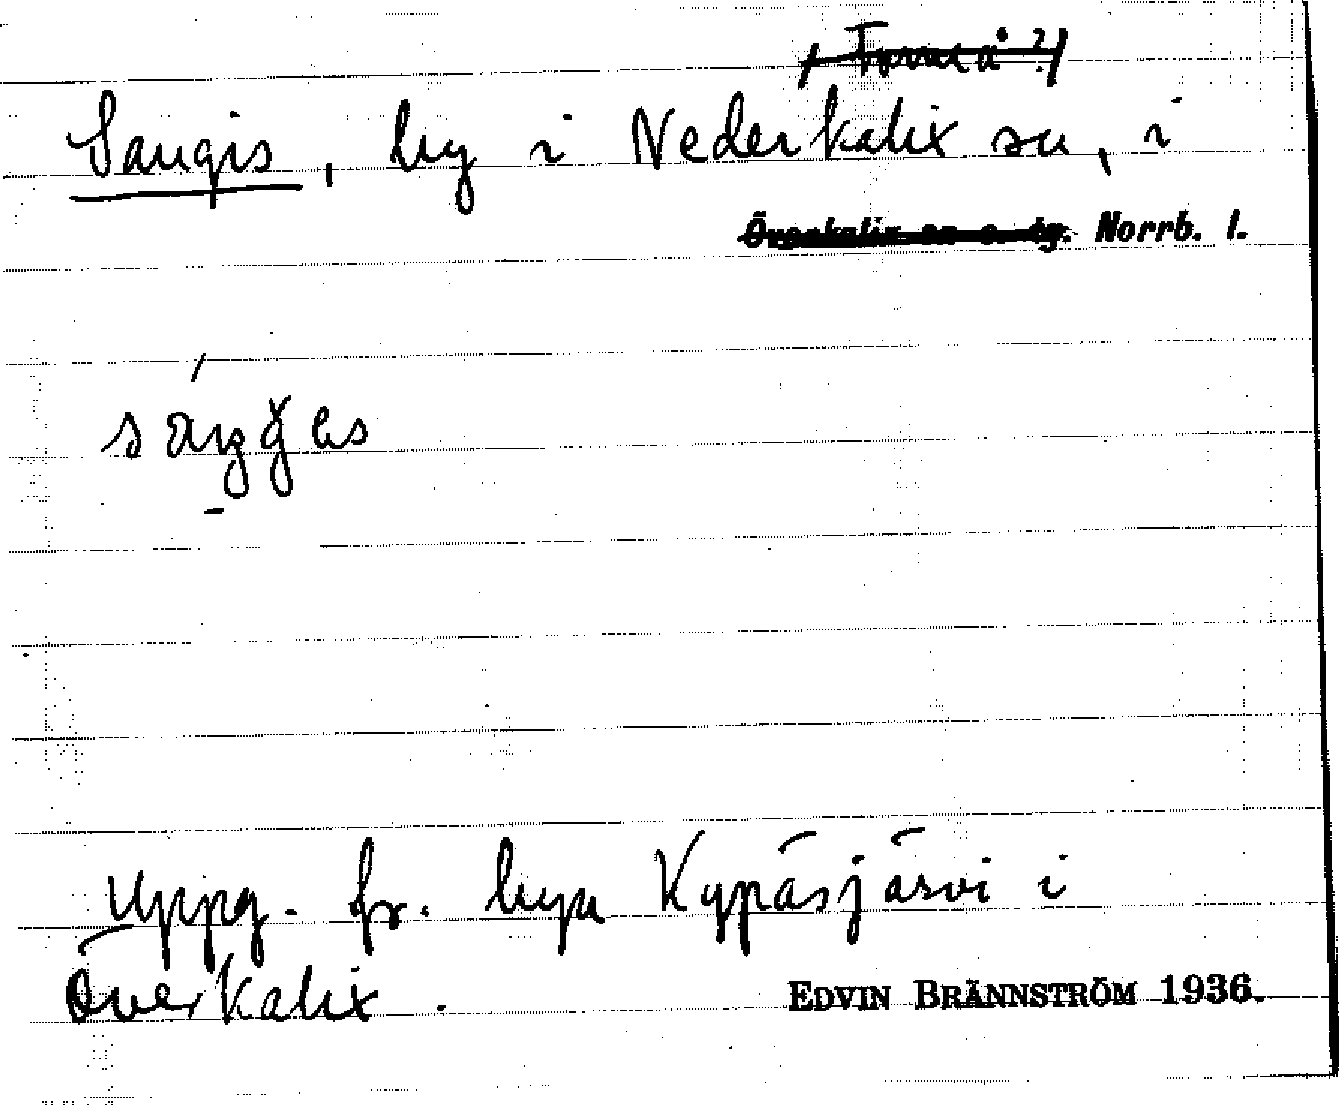 / Torneå ?/
Sangis, by i Nederkalix sn, i
Överkalix sn o. tg. Norrb. l.
Uppg. fr. byn Kypäsjärvi i
Överkalix. EDVIN BRÄNNSTRÖM 1936.